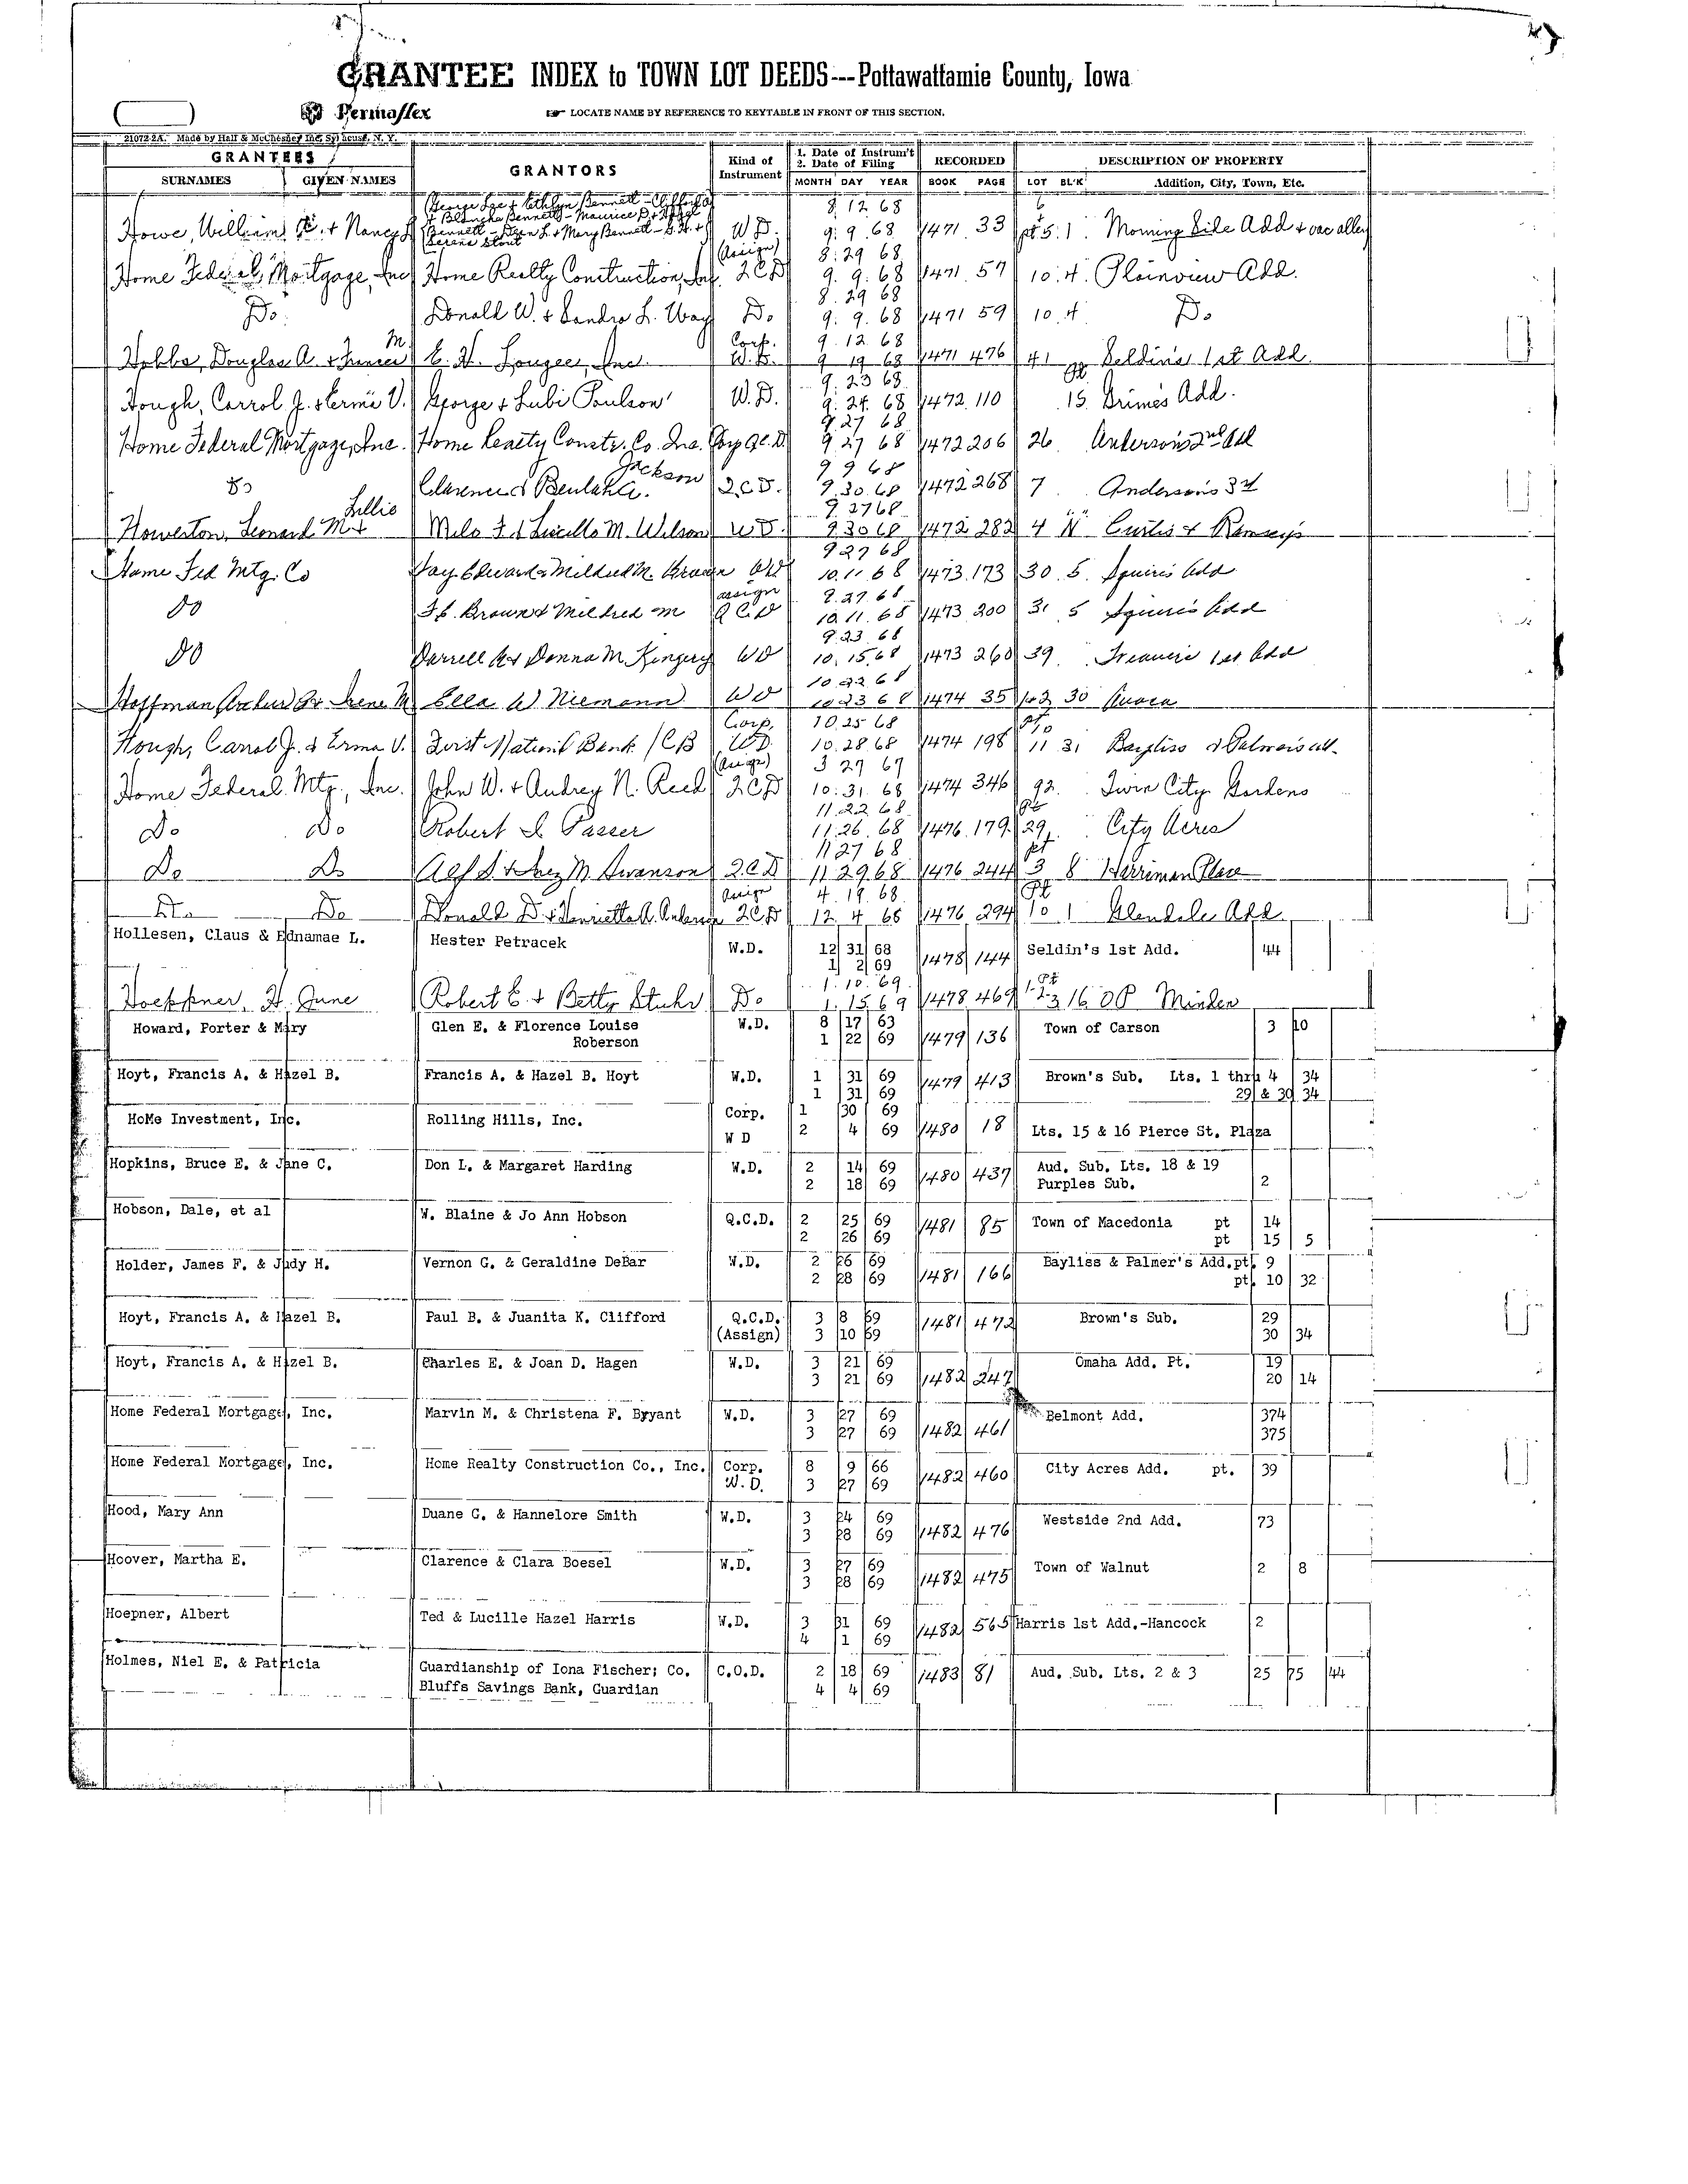 GRANTEE INDEX to TOWN LOT DEEDS---Pottawattamie County, Iowa
Permaflex ☞ LOCATE NAME BY REFERENCE TO KEYTABLE IN FRONT OF THIS SECTION.
21072-2A. Made by Hall & McChesney Inc. Syracuse, N. Y.
GRANTEES GRANTORS Kind of Instrument 1. Date of Instrum't 2. Date of Filing RECORDED DESCRIPTION OF PROPERTY
SURNAMES GIVEN NAMES MONTH DAY YEAR BOOK PAGE LOT BL'K Addition, City, Town, Etc.
8 12 68
Howe, William & Nancy W D. 9 9 68 1471 33 pt 5 1 Morning Side Add & vac alley
(Assign) 8 29 68
Home Federal Mortgage, Inc Home Realty Construction, Inc. Q C D 9 9 68 1471 57 10 4 Plainview Add.
8 29 68
Do Donald W. & Sandra L. Way Do 9 9 68 1471 59 10 4 Do
Corp. 9 12 68
Hobbs, Douglas A. & M E. H. Lougee, Inc. W. D. 9 19 68 1471 476 41 Seldin's 1st Add.
9 23 68 pt
Hough, Carrol J. & Erma V. George & Poulson W.D. 9 24 68 1472 110 15 Grimes Add.
9 27 68
Home Federal Mortgage, Inc. Home Realty Constr. Co. Inc. Corp Q.C.D 9 27 68 1472 206 26 Anderson's 2nd Add
Jackson 9 9 68
Do Clarence & Beulah A. Q.C.D. 9 30 68 1472 268 7 Anderson's 3rd
Lillie 9 27 68
Howerton, Leonard M & Milo F. & Lucille M. Wilson W D. 9 30 68 1472 282 4 "N" Curtis & Ramsey's
9 27 68
Home Fed Mtg. Co Jay Edward & Mildred M. Brown WD 10 11 68 1473 173 30 5 Squire's Add
assign 9 27 68
Do J.E. Brown & Mildred M Q C D 10 11 68 1473 200 31 5 Squire's Add
9 23 68
Do Darrell & Donna M. Kingery WD 10 15 68 1473 260 39 1st Add
10 22 68
Hoffman Arthur Jr Irene M Ella W Niemann WD 10 23 68 1474 35 1&2 30 Avoca
Corp. 10 25 68 pt 10
Hough, Carrol J. & Erma V. First National Bank / CB W D. 10 28 68 1474 198 11 31 Bayliss & Palmer's add.
(Assign) 3 29 67
Home Federal Mtg., Inc. John W. & Audrey N. Reed Q C D 10 31 68 1474 346 92 Twin City Gardens
11 22 68 pt
Do Do Robert I. Passer 11 26 68 1476 179 29 City Acres
11 27 68 pt
Do Do Alf S. & Inez M. Swanson Q.C.D 11 29 68 1476 244 3 8 Herriman Place
Assign 4 19 68 Pt
Do Do Donald D. & Henrietta A. Anderson Q C D 12 4 68 1476 294 10 1 Glendale Add
Hollesen, Claus & Ednamae L. Hester Petracek W.D. 12 31 68 Seldin's 1st Add. 44
1 2 69 1478 144
1 10 69 Pt
Hoeppner, H. June Robert E. & Betty Stuhr Do 1 15 69 1478 469 1-2-3 16 OP Minden
Howard, Porter & Mary Glen E. & Florence Louise W.D. 8 17 63 Town of Carson 3 10
Roberson 1 22 69 1479 136
Hoyt, Francis A. & Hazel B. Francis A. & Hazel B. Hoyt W.D. 1 31 69 1479 413 Brown's Sub. Lts. 1 thru 4 34
1 31 69 29 & 30 34
HoMe Investment, Inc. Rolling Hills, Inc. Corp. 1 30 69
W D 2 4 69 1480 18 Lts. 15 & 16 Pierce St. Plaza
Hopkins, Bruce E. & Jane C. Don L. & Margaret Harding W.D. 2 14 69 1480 437 Aud. Sub. Lts. 18 & 19
2 18 69 Purples Sub. 2
Hobson, Dale, et al W. Blaine & Jo Ann Hobson Q.C.D. 2 25 69 1481 85 Town of Macedonia pt 14
2 26 69 pt 15 5
Holder, James F. & Judy H. Vernon G. & Geraldine DeBar W.D. 2 26 69 Bayliss & Palmer's Add.pt. 9
2 28 69 1481 166 pt. 10 32
Hoyt, Francis A. & Hazel B. Paul B. & Juanita K. Clifford Q.C.D. 3 8 69 1481 472 Brown's Sub. 29
(Assign) 3 10 69 30 34
Hoyt, Francis A. & Hazel B. Charles E. & Joan D. Hagen W.D. 3 21 69 Omaha Add. Pt. 19
3 21 69 1482 247 20 14
Home Federal Mortgage, Inc. Marvin M. & Christena F. Bryant W.D. 3 27 69 Belmont Add. 374
3 27 69 1482 461 375
Home Federal Mortgage, Inc. Home Realty Construction Co., Inc. Corp. 8 9 66 City Acres Add. pt. 39
W.D. 3 27 69 1482 460
Hood, Mary Ann Duane G. & Hannelore Smith W.D. 3 24 69 Westside 2nd Add. 73
3 28 69 1482 476
Hoover, Martha E. Clarence & Clara Boesel W.D. 3 27 69 Town of Walnut 2 8
3 28 69 1482 475
Hoepner, Albert Ted & Lucille Hazel Harris W.D. 3 31 69 1482 565 Harris 1st Add.-Hancock 2
4 1 69
Holmes, Niel E. & Patricia Guardianship of Iona Fischer; Co. C.O.D. 2 18 69 1483 81 Aud. Sub. Lts. 2 & 3 25 75 44
Bluffs Savings Bank, Guardian 4 4 69